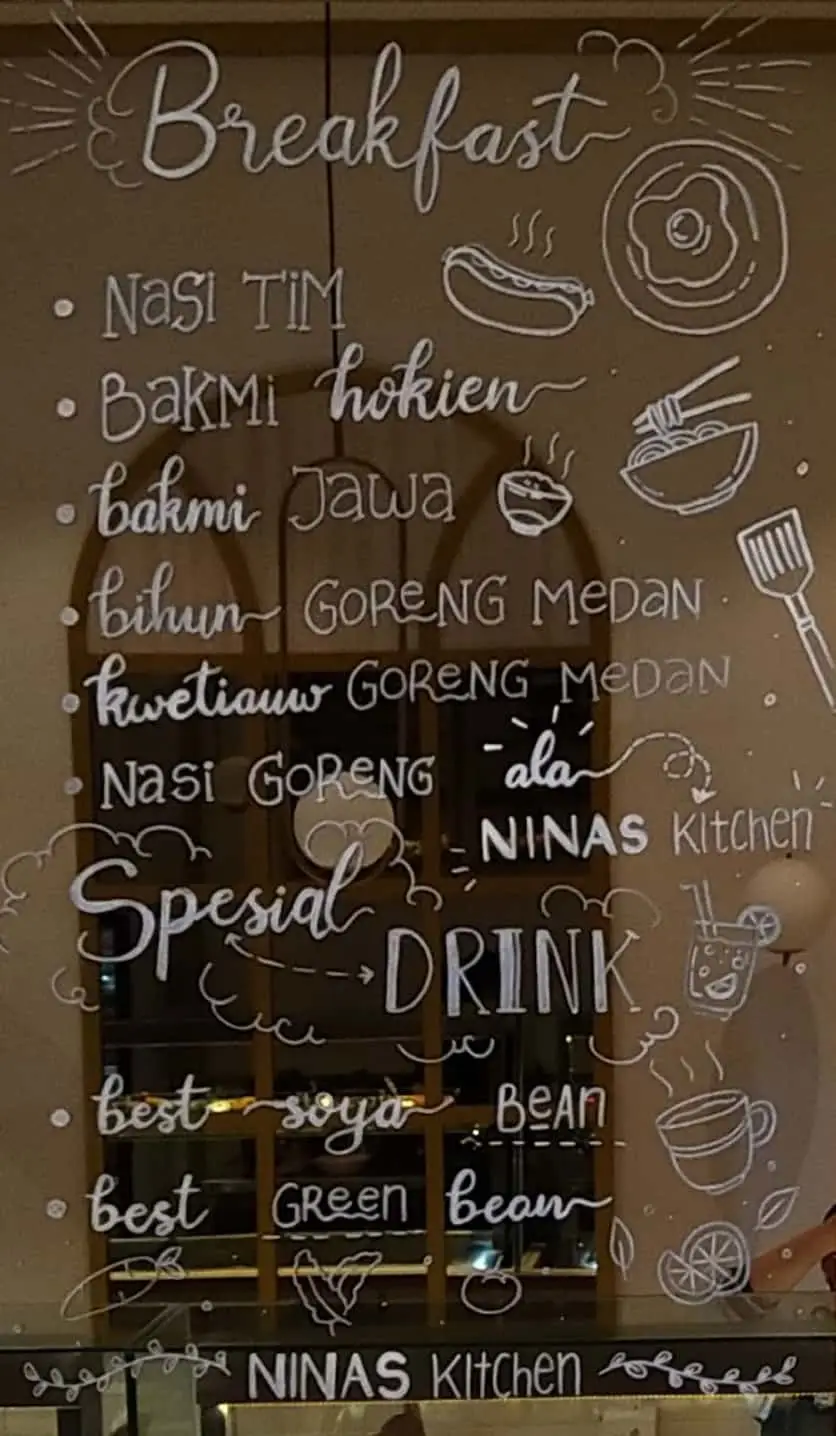 Breakfast
• NaSi TiM
• BaKMi hokien
• bakmi Jawa
• bihun GOReNG MeDaN
• kwetiauw GOReNG MeDaN
• Nasi GOReNG ala
NINAS Kitchen
Spesial
DRINK
• best soya BeAn
• best GReen bean
NINAS Kitchen